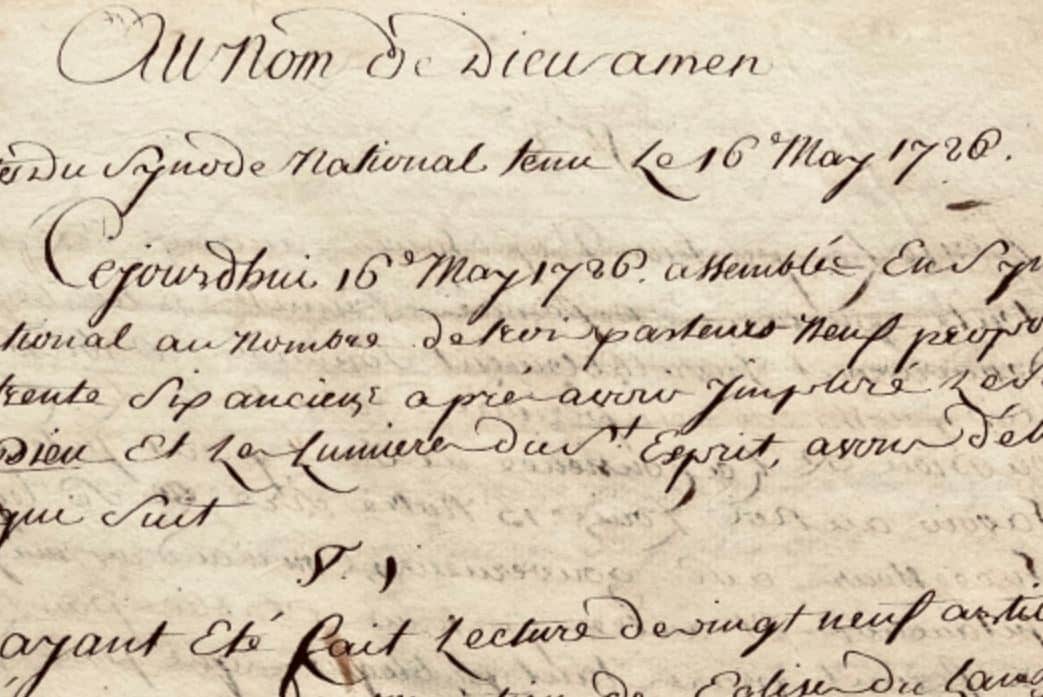 Au Nom de Dieu amen
du Synode National tenu Le 16e May 1726.
Cejourdhui 16e May 1726. assemblés En Sy
tional au Nombre de trois pasteurs Neuf propo
trente Six anciens apres avoir Imploré Le S
Dieu Et La Lumiere du St Esprit, avons dél
qui Suit
§. 1
ayant Eté fait Lecture de vingt neuf arti
Eglise du Lang